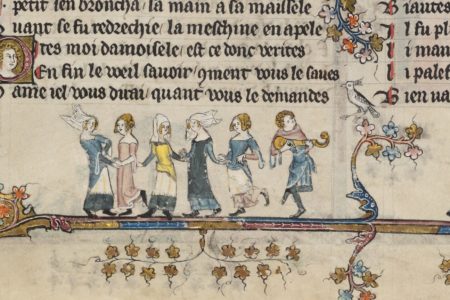 petit sen broncha la main a sa maissele
uant se fu redrechie la meschine en apele
tes moi damoisele est ce donc verites
En fin le weil savoir qment vous le saues
ame iel vous dirai quant vous le demandes
il fu pl
i man
i palef
ien va